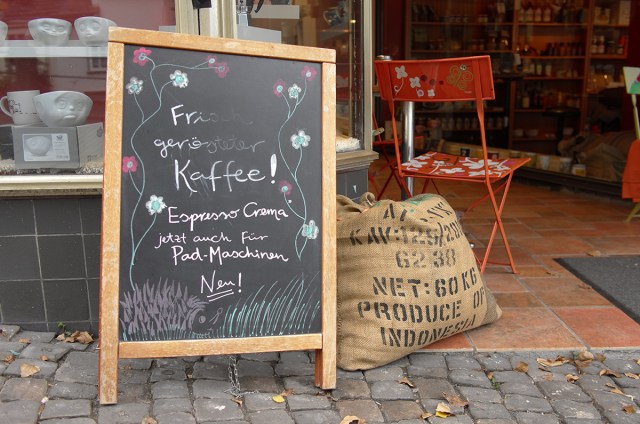 Frisch
gerösteter
Kaffee!
Espresso Crema
jetzt auch für
Pad-Maschinen
Neu!
62.30
NET: 60 KG
PRODUCE OF
INDONESIA